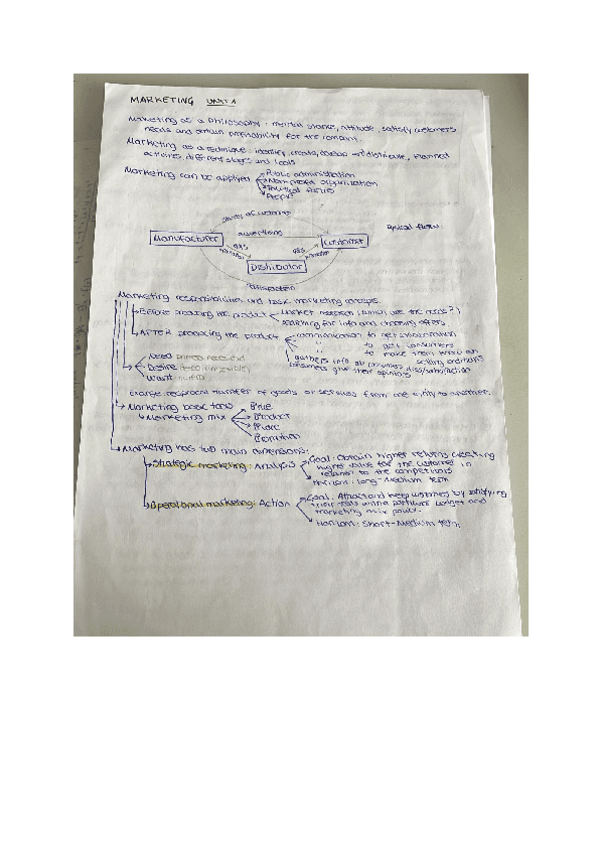 MARKETING UNIT 1
Marketing as a Philosophy: mental stance, attitude, satisfy customers
needs and obtain profitability for the company.
Marketing as a technique: identify, create, develop and distribute, planned
activities, different stages and tools
Marketing can be applied
Public administration
Non-profit organization
Political parties
People
advertising
Manufacturer
Customer
Typical flow
Distributor
Marketing responsibilities and basic marketing concepts.
Before producing the product
Market research (which are the needs?)
searching for info and choosing offers
AFTER producing the product
communication to get
to get consumers
to make them
gathers info
consumers give their opinions
Need
Desire
Want
reciprocal transfer of goods or services from one entity to another.
Marketing basic tools
Marketing mix
Price
Product
Place
Promotion
Marketing has two main dimensions:
Strategic marketing: Analysis
Goal: Obtain higher returns creating
higher value for the customer in
relation to the competitors
Horizon: Long-Medium term
Operational marketing: Action
Goal: Attract and keep customers by satisfying
their needs within particular budget and
marketing mix policy.
Horizon: Short-Medium term.